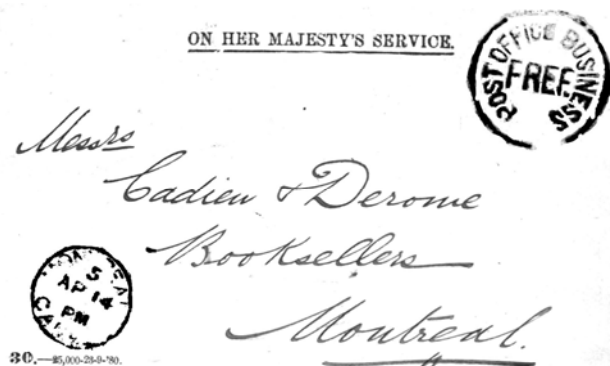 ON HER MAJESTY'S SERVICE.
POST OFFICE BUSINESS
FREE.
Messrs
Cadieu & Derome
Booksellers
Montreal.
MONTREAL
5
AP 14
PM
CANADA
30.—25,000-23-9-'80.